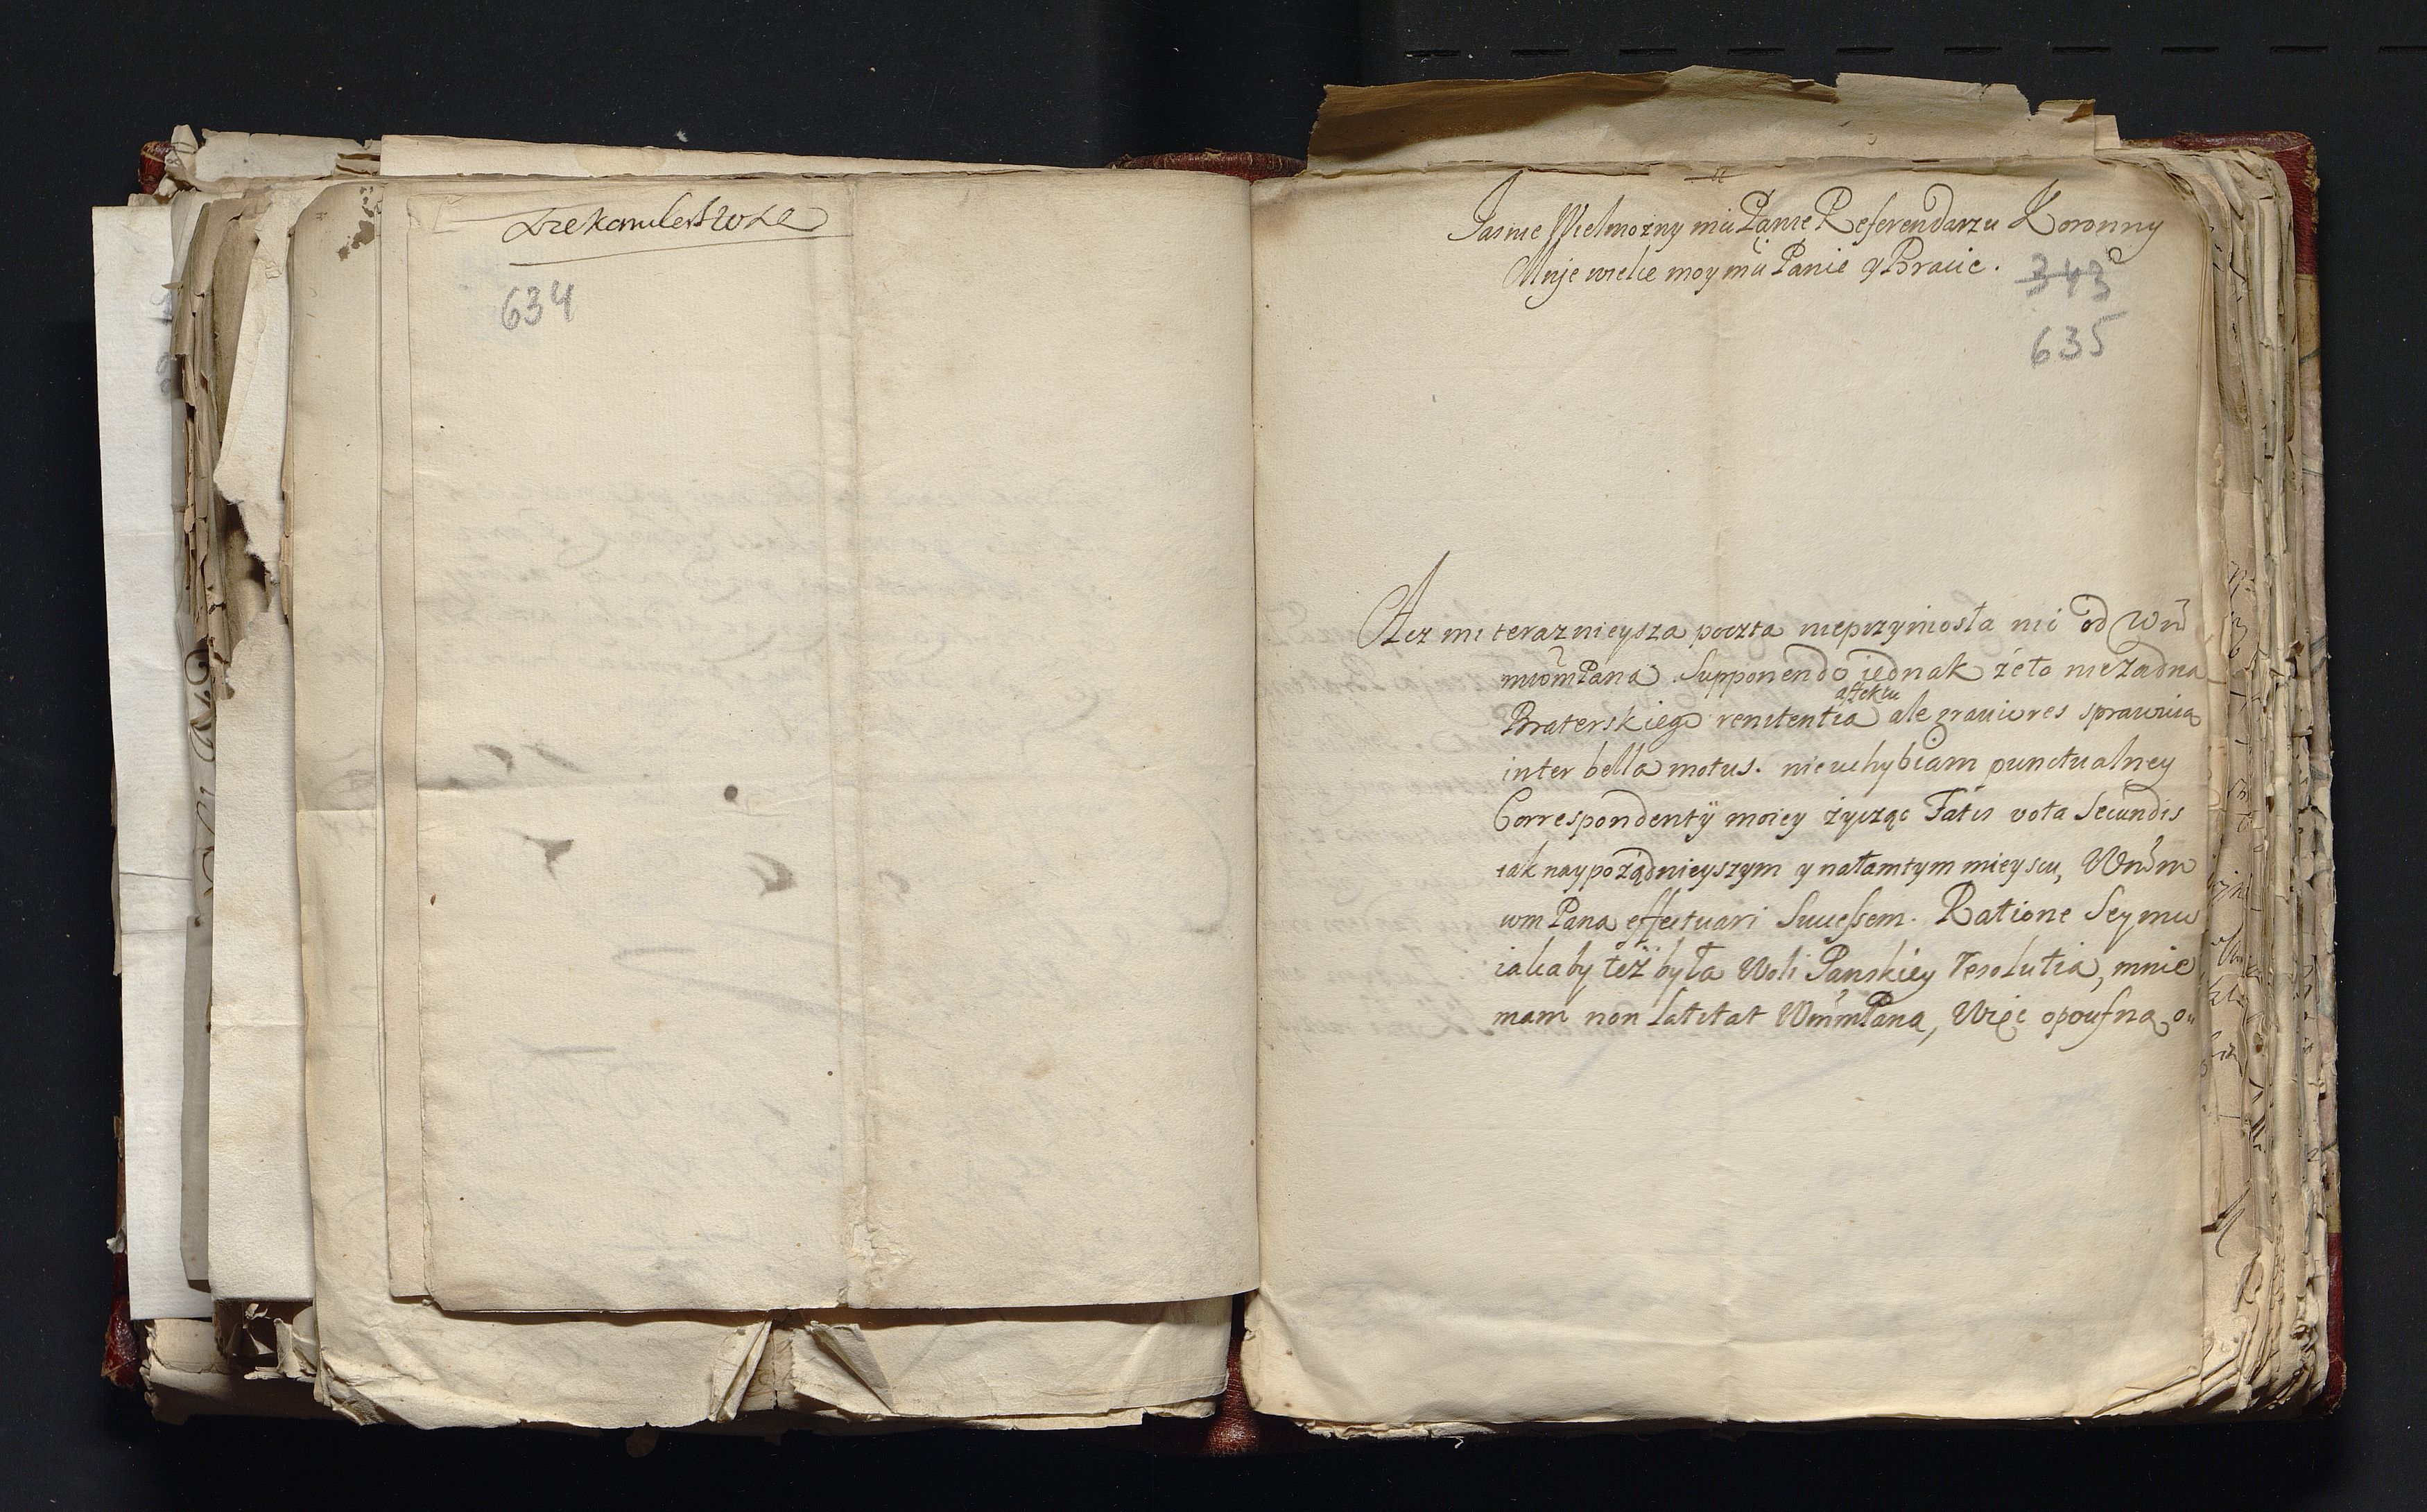 634
Jasnie Wielmożny mci Panie Referendarzu Koronny
Mnje wielce moy mci Panie y Bracie.
343
635
Acz mi teraznieysza poczta nieprzyniosła nic od Wm̃
mwomPana. Supponendo iednak że to nieżadna
affektu
Braterskiego renitentia ale graviores sprawuią
inter bella motus. nieuchybiam punctualney
Correspondentÿ moiey życząc Fatis vota Secundis
iak naypożądnieyszym y natamtym mieyscu, Wm̃m
wm Pana effectuari Successem. Ratione Seymu
iakaby też była Woli Panskiey resolutia, mnie
mam non latitat Wm̃mPana, Więc opoufną o„